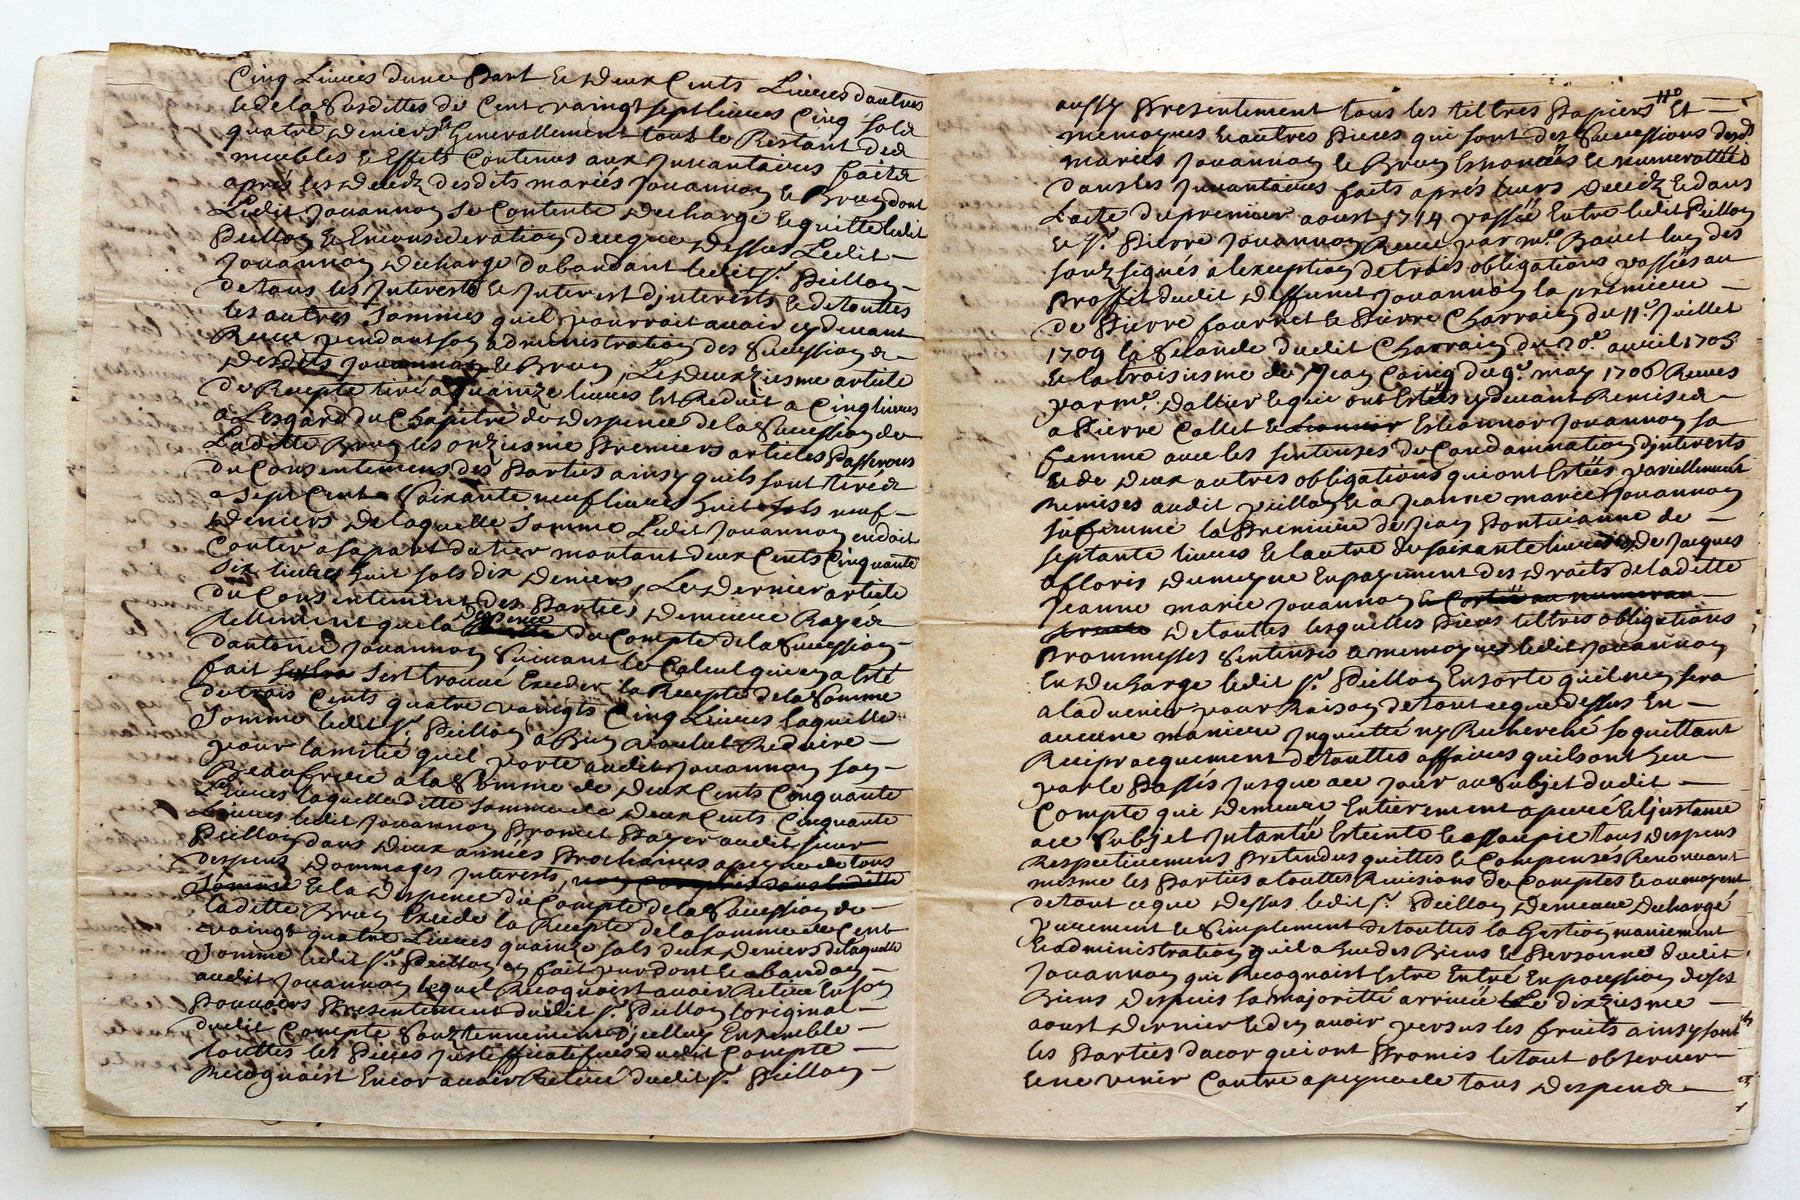 Cinq Livres dune Part et deux Cents Livres dautres
et de la susdittes de Cent vaingt sept livres Cinq sold
quatre deniers & Generallement tout le Restant des
meubles et Effets Contenus aux Juvantaires faits
après les decedz desdits mariés Jouannon et Bruy dont
Ledit Jouannon se Contente decharge et quitte ledit
Peillon et En Consideration de ceque dessus Ledit
Jouannon decharge dabondant ledit sr. Peillon
de tous les Interests et Interest dinterests et de touttes
les autres sommes quil pourroit avoir cy devant
Receu pendant son administration des Succession
desdits Jouannon et Bruy, Le deuxziesme article
de Recepte tiré a quainze livres Est Reduit a Cinq livres
a Lesgard du Chapitre de despence de la Succession de
Laditte Bruy les onziesme Premiers articles Passerons
du Consentement des Parties ainsy quils sont tirés
a sept Cents soixante neuf livres huit sols neuf
deniers de laquelle somme Ledit Jouannon en doit
Conter a sa part du tier montant deux Cents Cinquante
six livres huit sols dix deniers, Le dernier article
du Consentement des Parties demeure Rayés
tellement que la despence du Compte de la Succession
dantoine Jouannon suivant le Calcul quien a Esté
fait sest trouvé Exceder la Recepte de la Somme
de trois Cents quatre vaingts Cinq Livres laquelle
Somme ledit sr. Peillon a Bien voulut Reduire
pour lamitié quil porte audit Jouannon son
Beaufrere a la Somme de deux Cents Cinquante
Livres laquelleditte somme de deux Cents Cinquante
Livres ledit Jouannon Promet Payer audit sieur
Peillon dans deux années Prochaines a peyne de tous
despens dommages Interests,
Et la despence du Compte de la Succession de
laditte Bruy Excede la Recepte de la somme de Cent
vaingt quatre Livres quainze sols deux deniers de laquelle
Somme ledit sr. Peillon en fait pur dont et abandon
audit Jouannon lequel Recognoist avoir Retiré En son
Pouvoirs Presentement dudit sr. Peillon loriginal
dudit Compte Ensemble
touttes les Pieces Justifficatifves dudit Compte
Recognoist Encor avoir Retiré dudit sr. Peillon
110
aussy Presentement tous les tiltres Papiers Et
memoyres et autres Pieces qui sont des Successions desds
mariés Jouannon et Bruy Enoncées et numerottés
dans les Juvantaires faits après leurs decedz et dans
Lacte du premier aoust 1714 passée Entre ledit Peillon
et sr. Pierre Jouannon Receu par me. Bauet luy des
souz signés a lexception de trois obligations passées au
Proffit dudit deffunct Jouannon la premiere
de Pierre fourret et Pierre Charrain du 11e. Juillet
1709 la Segonde dudit Charrain du 20e. avril 1705
et la troisiesme de Jean Coing du 9e. may 1706 Receues
par me. dallier et qui ont Estés cy devant Remises
a Pierre Collet et Esleannor Jouannon sa
femme avec les sentenses de Condamnation dinterests
et de deux autres obligations qui ont Estés pareillement
Remises audit peillon et a Jeanne marie Jouannon
sa femme la Premiere de Jean Pontuianne de
septante livres et lautre de soixante livres de Jacques
offoris dumeyne En payement des droits de laditte
Jeanne marie Jouannon
de touttes lesquelles Pieces tiltres obligations
Prommesses sentenses et memoyres ledit Jouannon
En decharge ledit sr. Peillon En sorte quil ney sera
a ladvenir pour Raison de tout ceque dessus En
aucune maniere Inquietté ny Recherché se quittant
Reciprocquement de touttes affaires quils ont heu
par le Passés Jusque a ce Jour au Subjet dudit
Compte qui demeure Entierement apuré Et Justance
a ce Subjet Intantée Esteinte et assoupie tous despens
Respectivement Pretendus quittes et Compensés Renoncant
mesme les Parties a touttes Revisions de Comptes et au moyent
de tout ceque dessus ledit sr. Peillon demeure decharge
purement et Simplement de touttes la Gestion maniement
Et administration quil a heu des Biens et Personne dudit
Jouannon qui Recognoist Estre Entré En pocession de ses
Biens despuis sa majoritté arrivée Le dixziesme
aoust dernier et den avoir persus les fruits ainsy sont
les Parties dacor qui ont Promis le tout observer
et ne venir Contre a peyne de tous despens